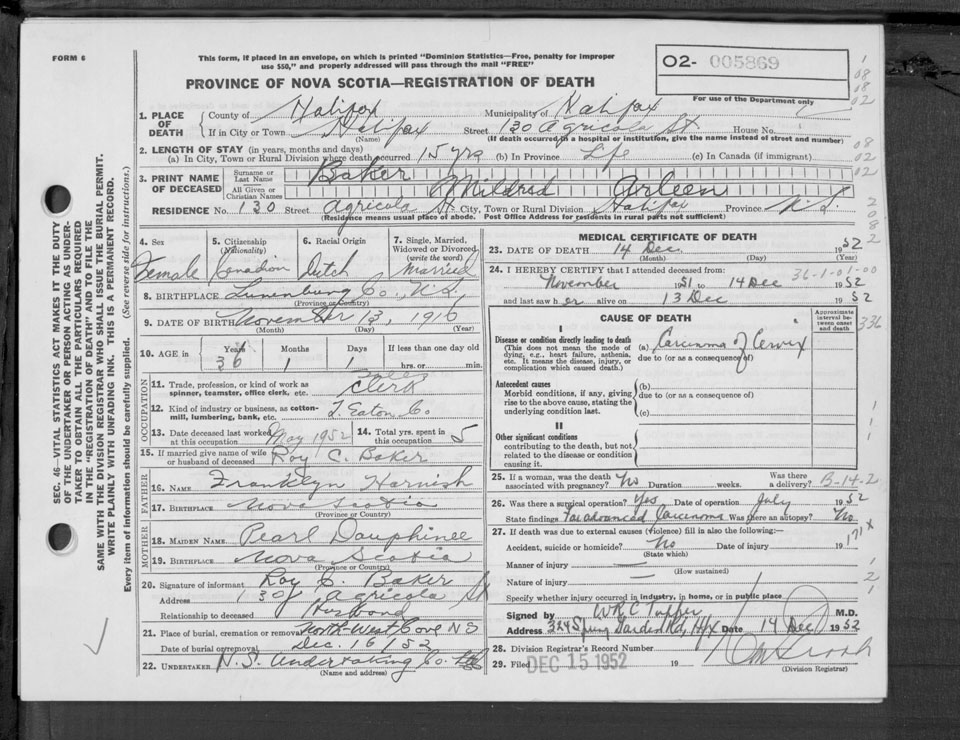 FORM 6
This form, if placed in an envelope, on which is printed "Dominion Statistics—Free, penalty for improper
use $50," and properly addressed will pass through the mail "FREE"
PROVINCE OF NOVA SCOTIA—REGISTRATION OF DEATH
O2- 005869
For use of the Department only
1. PLACE OF DEATH
County of Halifax Municipality of Halifax
If in City or Town Halifax Street 130 Agricola St House No.
(Name) (If death occurred in a hospital or institution, give the name instead of street and number)
2. LENGTH OF STAY (in years, months and days)
(a) In City, Town or Rural Division where death occurred 15 yrs (b) In Province Life (c) In Canada (if immigrant)
3. PRINT NAME OF DECEASED
Surname or Last Name Baker
All Given or Christian Names Mildred Arleen
RESIDENCE No. 130 Street Agricola St City, Town or Rural Division Halifax Province N.S.
(Residence means usual place of abode. Post Office Address for residents in rural parts not sufficient)
4. Sex Female
5. Citizenship (Nationality) Canadian
6. Racial Origin Dutch
7. Single, Married, Widowed or Divorced (write the word) Married
8. BIRTHPLACE Lunenburg Co., N.S.
(Province or Country)
9. DATE OF BIRTH November 13, 1916
(Month) (Day) (Year)
10. AGE in Years 36 Months 1 Days 1 If less than one day old
hrs. or min.
OCCUPATION
11. Trade, profession, or kind of work as
spinner, teamster, office clerk, etc. Clerk
12. Kind of industry or business, as cotton-
mill, lumbering, bank, etc. T. Eaton Co.
13. Date deceased last worked at this occupation May 1952
14. Total yrs. spent in this occupation 5
15. If married give name of wife or husband of deceased Roy C. Baker
FATHER
16. NAME Franklyn Harnish
17. BIRTHPLACE Nova Scotia
(Province or Country)
MOTHER
18. MAIDEN NAME Pearl Dauphinee
19. BIRTHPLACE Nova Scotia
(Province or Country)
20. Signature of informant Roy C. Baker
Address 130 Agricola St
Relationship to deceased Husband
21. Place of burial, cremation or removal North-West Cove N.S
Date of burial or removal Dec. 16/52
22. UNDERTAKER N.S. Undertaking Co. Ltd
(Name and address)
MEDICAL CERTIFICATE OF DEATH
23. DATE OF DEATH 14 Dec 1952
(Month) (Day) (Year)
24. I HEREBY CERTIFY that I attended deceased from:
36-1-01-00
November 1951 to 14 Dec 1952
and last saw her alive on 13 Dec 1952
CAUSE OF DEATH
Approximate interval between onset and death
336
I
Disease or condition directly leading to death
(This does not mean the mode of
dying, e.g., heart failure, asthenia,
etc. It means the disease, injury, or
complication which caused death.)
(a) Carcinoma of Cervix
due to (or as a consequence of)
Antecedent causes
Morbid conditions, if any, giving
rise to the above cause, stating the
underlying condition last.
(b)
due to (or as a consequence of)
(c)
II
Other significant conditions
contributing to the death, but not
related to the disease or condition
causing it.
25. If a woman, was the death associated with pregnancy? No Duration weeks. Was there a delivery?
B-14-2
26. Was there a surgical operation? Yes Date of operation July 1952
State findings Far advanced Carcinoma Was there an autopsy? No
27. If death was due to external causes (violence) fill in also the following:—
Accident, suicide or homicide? No Date of injury 19
(State which)
171 x
Manner of injury
(How sustained)
Nature of injury
Specify whether injury occurred in industry, in home, or in public place
Signed by W K C Tupper M.D.
Address 324 Spring Garden Rd, Hfx Date 14 Dec 1952
28. Division Registrar's Record Number
29. Filed DEC 15 1952 19
(Division Registrar)
SEC. 46—VITAL STATISTICS ACT MAKES IT THE DUTY
OF THE UNDERTAKER OR PERSON ACTING AS UNDER-
TAKER TO OBTAIN ALL THE PARTICULARS REQUIRED
IN THE "REGISTRATION OF DEATH" AND TO FILE THE
SAME WITH THE DIVISION REGISTRAR WHO SHALL ISSUE THE BURIAL PERMIT.
WRITE PLAINLY WITH UNFADING INK. THIS IS A PERMANENT RECORD.
Every item of information should be carefully supplied. (See reverse side for instructions.)